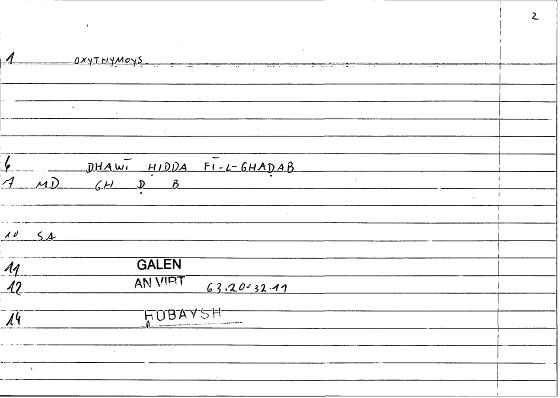 2
1 OXYTHYMOYS
6 DHAWĪ ḤIDDA FĪ-L-GHAḌAB
7 MD GH Ḍ B
10 SA
11 GALEN
12 AN VIRT 63.20-32.11
14 ḤOBAYSH